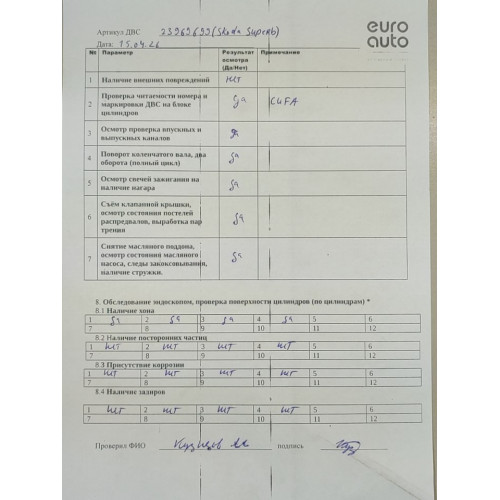 euro
auto
Артикул ДВС 23969693 (Skoda Superb)
Дата: 15.04.26
№ Параметр Результат осмотра (Да/Нет) Примечания
1 Наличие внешних повреждений нет
2 Проверка читаемости номера и маркировки ДВС на блоке цилиндров да
3 Осмотр проверка впускных и выпускных каналов да
4 Поворот коленчатого вала, два оборота (полный цикл) да
5 Осмотр свечей зажигания на наличие нагара да
6 Съём клапанной крышки, осмотр состояния постелей распредвалов, выработка пар трения да
7 Снятие масляного поддона, осмотр состояния масляного насоса, следы закоксовывания, наличие стружки. да
8. Обследование эндоскопом, проверка поверхности цилиндров (по цилиндрам) *
8.1 Наличие хона
1 да 2 да 3 да 4 да 5 6
7 8 9 10 11 12
8.2 Наличие посторонних частиц
1 нет 2 нет 3 нет 4 нет 5 6
7 8 9 10 11 12
8.3 Присутствие коррозии
1 нет 2 нет 3 нет 4 нет 5 6
7 8 9 10 11 12
8.4 Наличие задиров
1 нет 2 нет 3 нет 4 нет 5 6
7 8 9 10 11 12
Проверил ФИО подпись